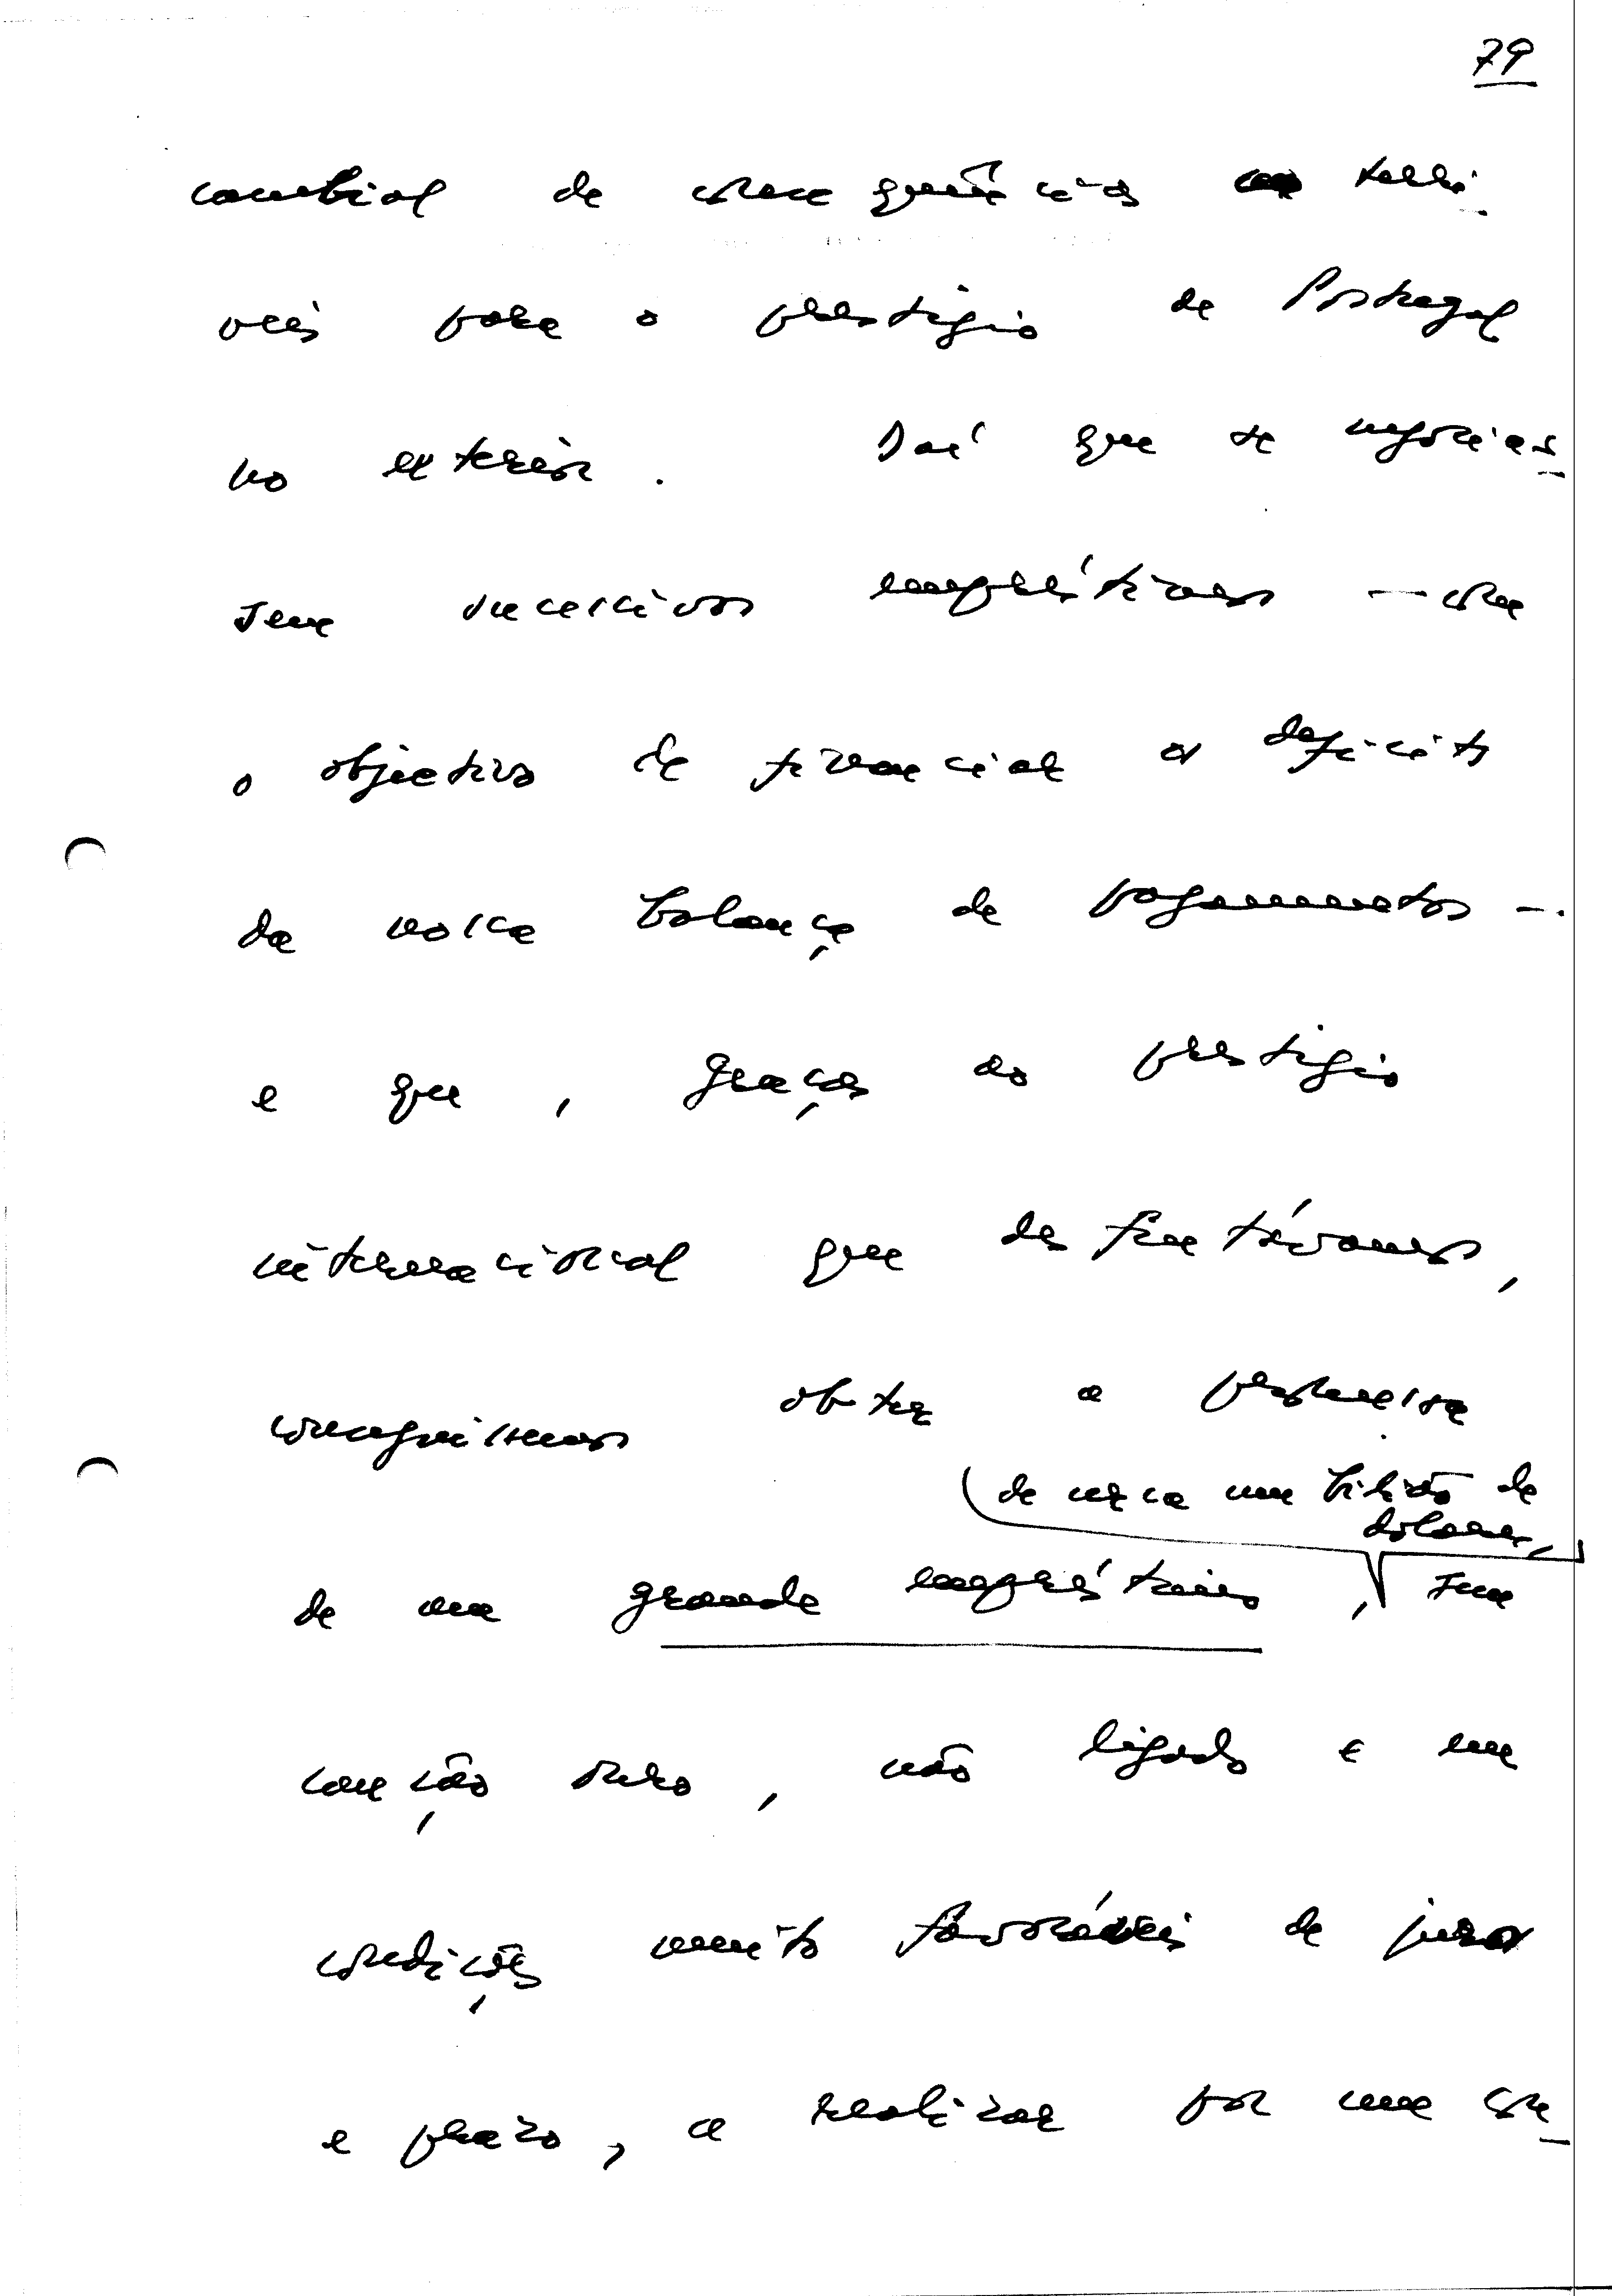 79
cambial de consequências terrí-
veis para o prestígio de Portugal
no exterior. Daí que se negocias-
sem sucessivos empréstimos — com
o objectivo de financiar os deficits
da nossa balança de pagamentos —
e que, graças ao prestígio
internacional que desfrutávamos,
conseguíssemos obter a promessa
de cerca um bilião de
dolares,
de um grande empréstimo, sem
caução ouro, não ligado e em
condições muito favoráveis de juros
e prazo, a realizar por um con-